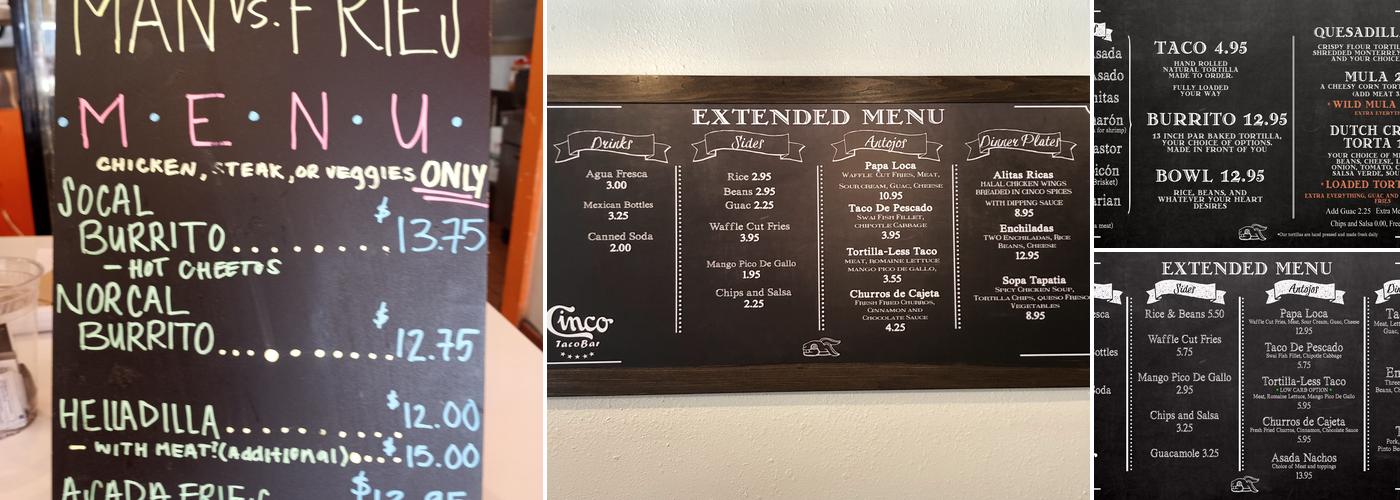 MAN VS. FRIES
M E N U
CHICKEN, STEAK, OR VEGGIES ONLY
SOCAL
BURRITO........$13.75
- HOT CHEETOS
NORCAL
BURRITO...........$12.75
HELLADILLA..........$12.00
- WITH MEAT?(additional)....$15.00
EXTENDED MENU
Drinks
Agua Fresca
3.00
Mexican Bottles
3.25
Canned Soda
2.00
Cinco
TacoBar
Sides
Rice 2.95
Beans 2.95
Guac 2.25
Waffle Cut Fries
3.95
Mango Pico De Gallo
1.95
Chips and Salsa
2.25
Antojos
Papa Loca
Waffle Cut Fries, Meat,
Sour Cream, Guac, Cheese
10.95
Taco De Pescado
Swai Fish Fillet,
Chipotle Cabbage
3.95
Tortilla-Less Taco
Meat, Romaine Lettuce
Mango Pico De Gallo,
3.55
Churros de Cajeta
Fresh Fried Churros,
Cinnamon and
Chocolate Sauce
4.25
Dinner Plates
Alitas Ricas
Halal Chicken Wings
Breaded in Cinco Spices
with Dipping Sauce
8.95
Enchiladas
Two Enchiladas, Rice
Beans, Cheese
12.95
Sopa Tapatia
Spicy Chicken Soup,
Tortilla Chips, Queso Fresco
Vegetables
8.95
TACO 4.95
HAND ROLLED
NATURAL TORTILLA
MADE TO ORDER.
FULLY LOADED
YOUR WAY
BURRITO 12.95
13 INCH PAR BAKED TORTILLA,
YOUR CHOICE OF OPTIONS.
MADE IN FRONT OF YOU
BOWL 12.95
RICE, BEANS, AND
WHATEVER YOUR HEART
DESIRES
QUESADILL
CRISPY FLOUR TORTIL
SHREDDED MONTERREY
AND YOUR CHOICE
MULA 2
A CHEESY CORN TORT
(ADD MEAT 3
* WILD MULA
EXTRA EVERYT
DUTCH CR
TORTA 1
YOUR CHOICE OF M
BEANS, CHEESE, L
ONION, TOMATO, C
SALSA VERDE, SOU
* LOADED TORT
EXTRA EVERYTHING, GUAC AND
FRIES
Add Guac 2.25 Extra Me
Chips and Salsa 0.00, Free
*Our tortillas are hand pressed and made fresh daily
EXTENDED MENU
Sides
Rice & Beans 5.50
Waffle Cut Fries
5.75
Mango Pico De Gallo
2.95
Chips and Salsa
3.25
Guacamole 3.25
Antojos
Papa Loca
Waffle Cut Fries, Meat, Sour Cream, Guac, Cheese
12.95
Taco De Pescado
Swai Fish Fillet, Chipotle Cabbage
5.75
Tortilla-Less Taco
* LOW CARB OPTION *
Meat, Romaine Lettuce, Mango Pico De Gallo
5.95
Churros de Cajeta
Fresh Fried Churros, Cinnamon, Chocolate Sauce
5.95
Asada Nachos
Choice of Meat and toppings
13.95